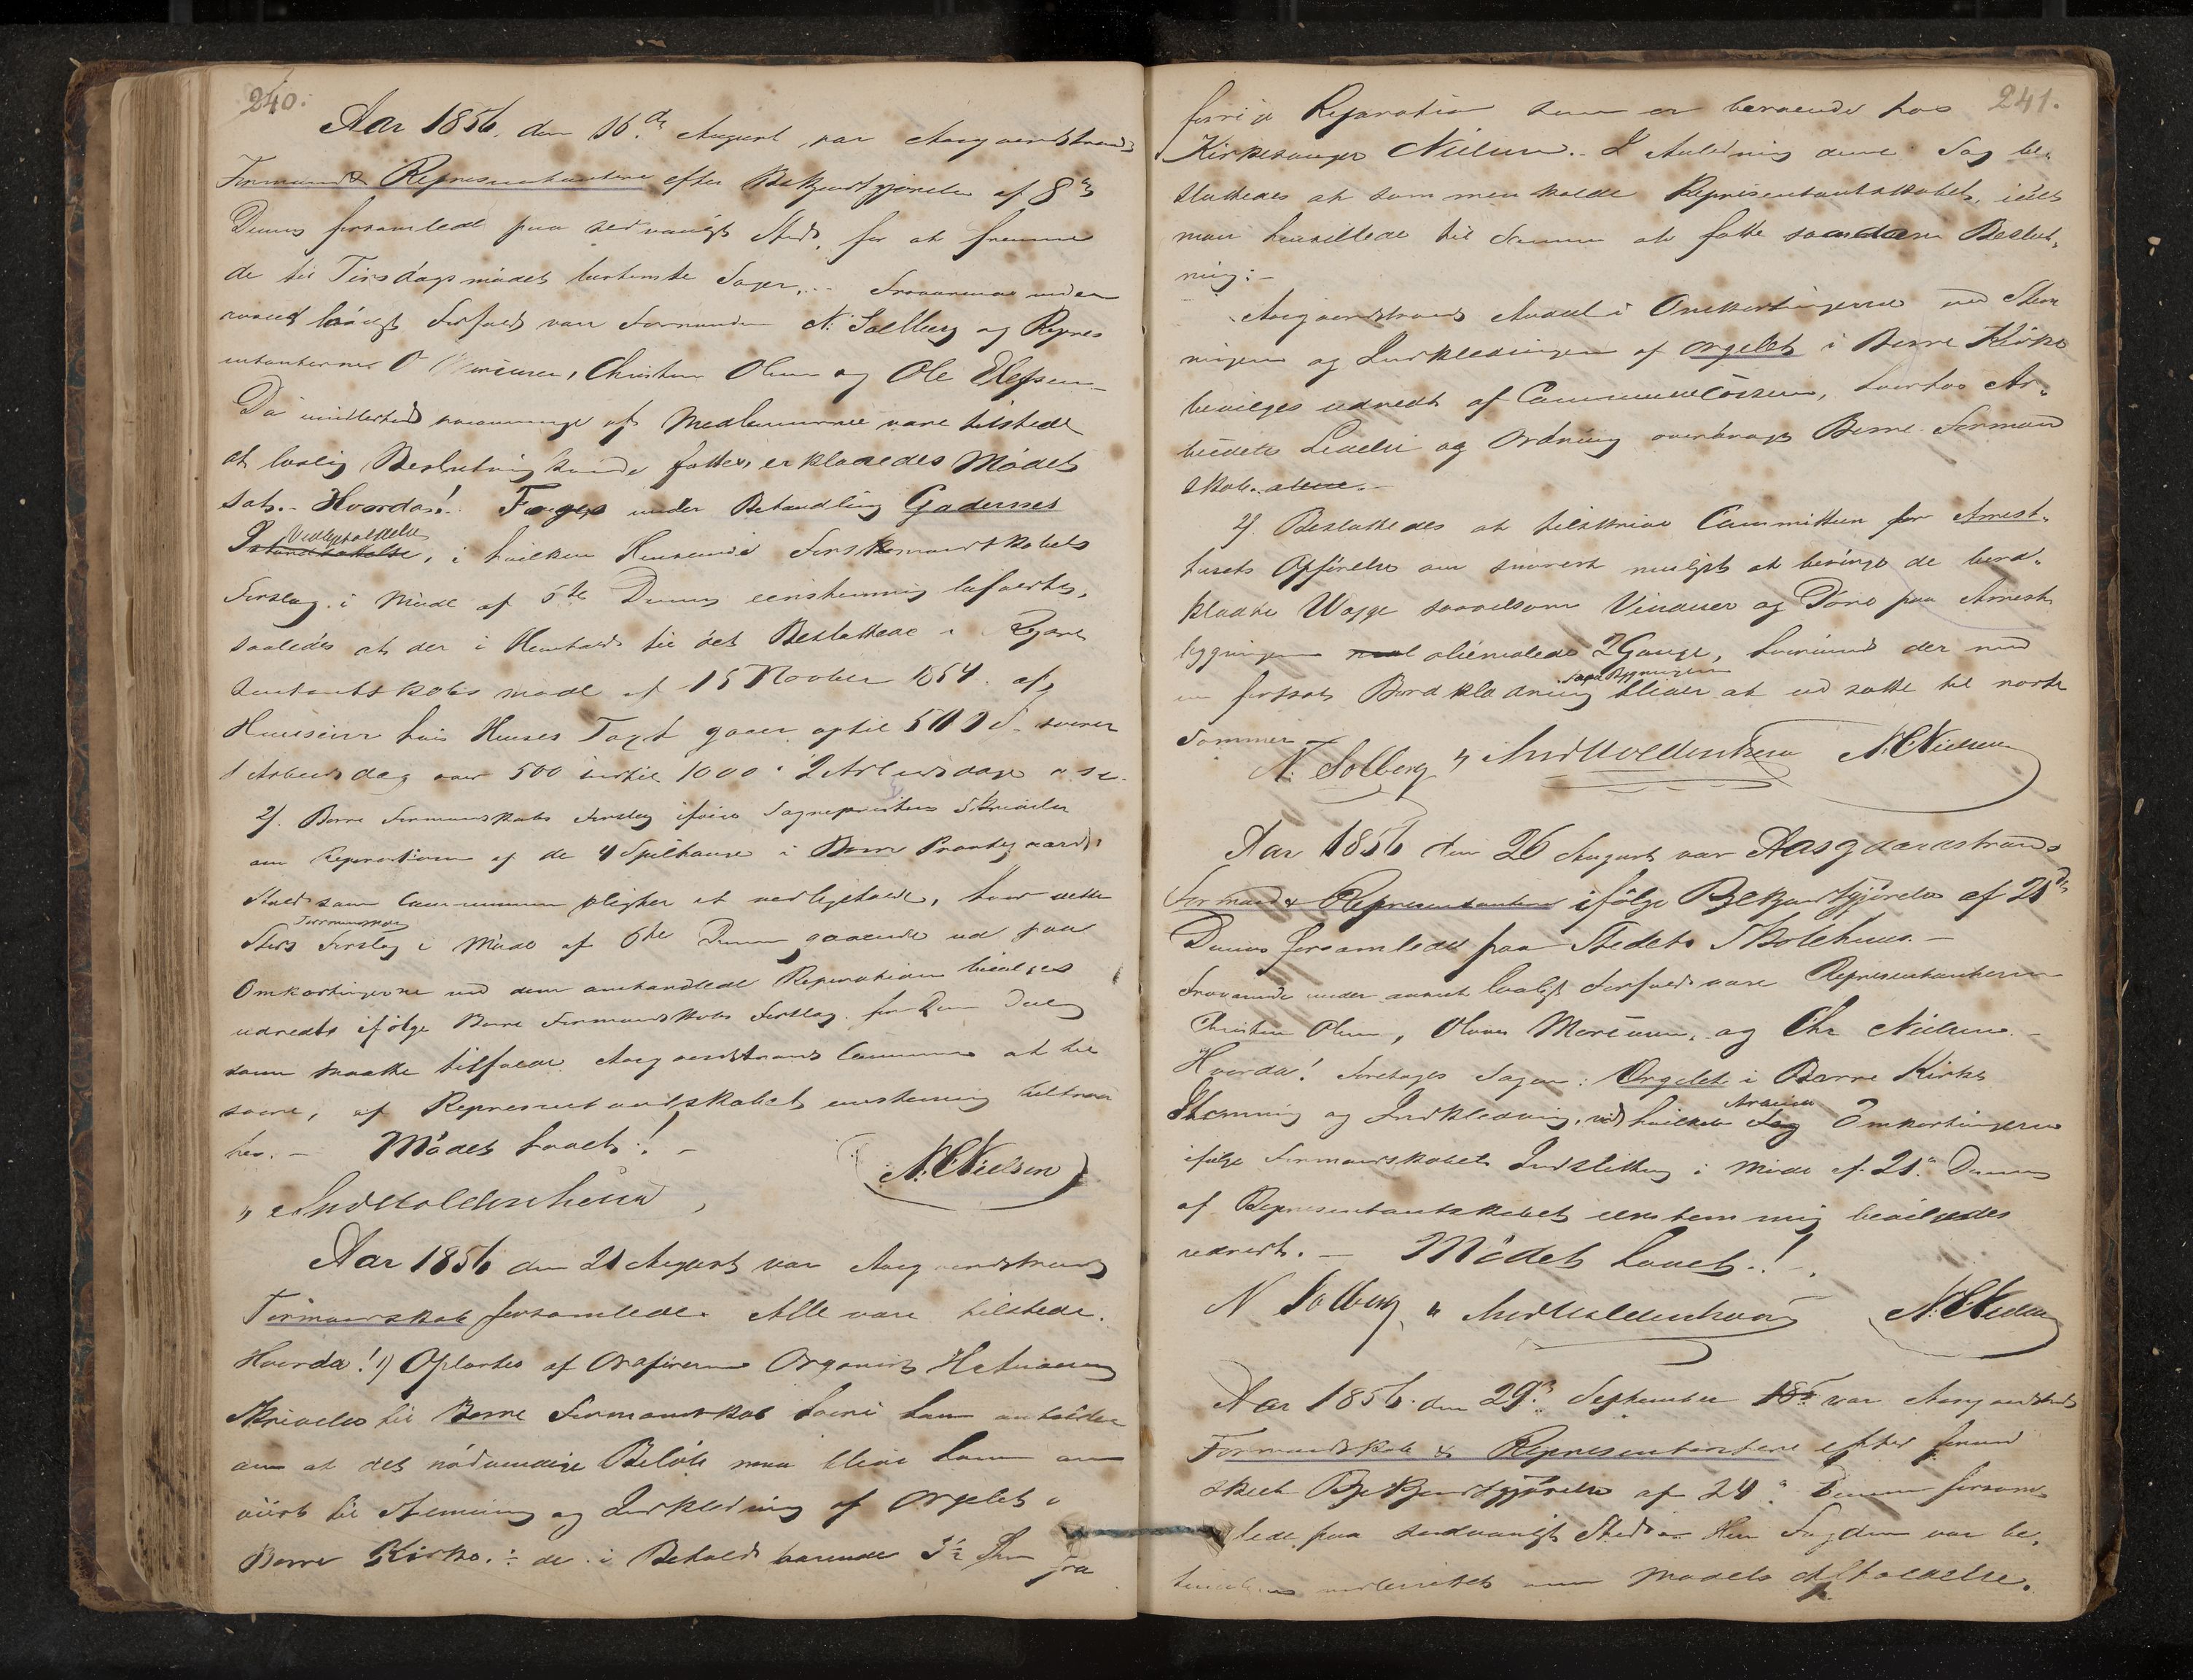 240.
Aar 1856. den 16.de August, var Aasgaardstrands
Formænd & Representantere efter Bekjendtgjørelse af 8de
Dennes forsamlede paa sedvanligt Sted, for at fremme
de til Tirsdagsmødet berammede Sager. Fraværende uden
anmeldt lovligt Forfald vare Formanden N. Solberg og Repres
entanterne O Morissen, Christen Olsen og Ole Ellefsen
Da imidlertid saamange af Medlemmerne vare tilstede
at lovlig Beslutning kunde fattes, erklæredes Mødet
sat. Hvorda! Toges under Behandling Gadernes
Vedligeholdelse
Istandholdelse, i hvilken Henseende Formandskabets
Forslag i Møde af 6te Dennes eenstemmig bifaldtes,
saaledes at der i Henhold til det Besluttede i Repræ
sentantskabets møde af 15 November 1854. af
Huuseiere hvis Huses Taxt gaaer optil 500 S. svarer
1 Arbeidsdag over 500 indtil 1000. 2 Arbeidsdage o. s. v.
2). Borre Formandskabs Forslag ifølge Sognepræstens Skrivelse
om Reparationen af de 4 Spilhouge i Borre Præstegaards
Stald som Communen pligter at vedligeholde, hvor dette
Formandskabs
Steds Forslag i Møde af 6te Dennes gaaende ud paa
Omkostningerne ved den omhandlede Reparation bevilges
udredte ifølge Borre Formandskabs Forslag for den Deel
som maatte tilfalde Aasgaardstrands Commune at til
svare, af Representantskabet eenstemmig tiltraad
tes. – Mødet hævet! –
" AndUoldenhaua, N. C. Nielsen
Aar 1856 den 21 August var Aasgaardstrands
Formandskab forsamlede. Alle vare tilstede.
Hvorda! 1) Oplæstes af Ordføreren Organist Halvorsens
Skrivelse til Borre Formandskab hvori han anholder
om at det nødvendige Beløb maa blive ham an
viist til Stemning og Indklædning af Orgelet i
Borre Kirke. : de i Behold havende 3½ Spd fra
241.
forrige Reparation som er beroende hos
Kirkesanger Nielsen. – I Anledning denne Sag be-
sluttedes at sammenkalde Representantskabet, idet
man henstillede til Samme at fatte saadan Beslut-
ning: –
Aasgaardstrands Andeel i Omkostningerne ved Stem
ningen og Indklædningen af Orgelet i Borre Kirke
bevilges udredt af Communecassen, hvorhos Ar-
beidets Ledelse og Ordning overdrages Borre Formand
skab. alene. –
2). Besluttedes at tilskrive Committeen for Arrest-
husets Opførelse om snarest muligt at besørge de bord-
klædte Vægge saavelsom Vinduer og Døre paa Arrest-
bygningen oliemalede 2 Gange, hvorimod der med
paa Bygningen
en forsat Bordklædning bliver at udsætte til næste
Sommer
N. Solberg " AndUoldenhaua N. C. Nielsen
Aar 1856 den 26 August var Aasgaardstrands
Formænd & Representantere ifølge Bekjendtgjørelse af 21de
Dennes forsamlede paa Stedets Skolehuus. –
Fraværende uden anmeldt lovligt Forfald vare Representanterne
Christen Olsen, Olaves Morissen, og Chr Nielsen. –
Hvorda! Foretages Sagen: Orgelet i Borre Kirkes
Arbeide
Stemning og Indklædning, ved hvilket Sag Omkostningerne
ifølge Formandskabets Indstilling i Møde af 21de Dennes
af Representantskabet eenstemmig bevilgedes
udredt. – Mødet hævet.! –
N Solberg, " AndUoldenhaua N. C. Nielsen
Aar 1856. den 29de September 185 var Aasgaardstrands
Formandskab & Representantere efter forud
skeet Bekjendtgjørelse af 24de Dennes forsam
lede paa sædvanligt Sted. Herr Fogden var be-
underrettet om Mødets Afholdelse.